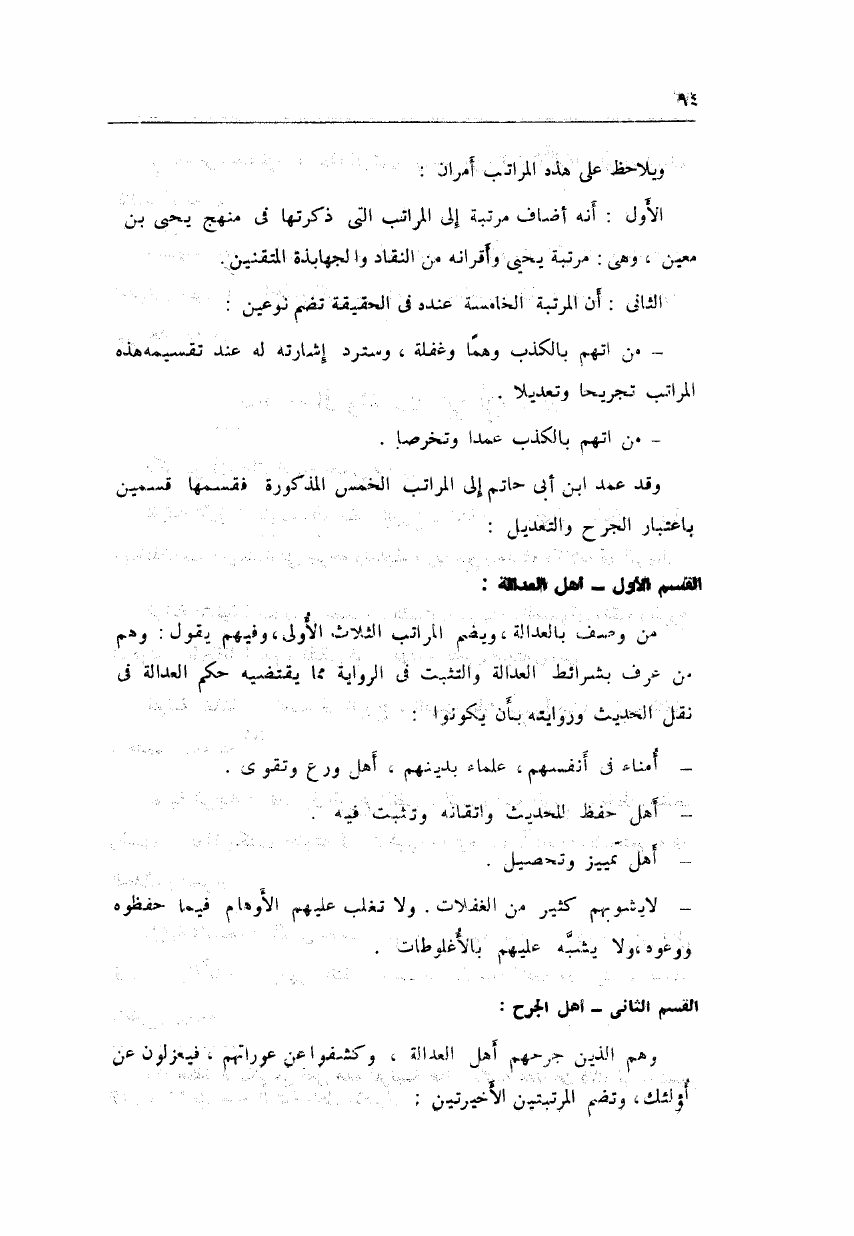 ٩٤
ويلاحظ على هذه المراتب أمران :
الأول : أنه أضاف مرتبة إلى المراتب التى ذكرتها فى منهج يحيى بن
معين ، وهى : مرتبة يحيى وأقرانه من النقاد والجهابذة المتقنين .
الثانى : أن المرتبة الخامسة عنده فى الحقيقة تضم نوعين :
– من اتهم بالكذب وهمًا وغفلة ، وسترد إشارته له عند تقسيمه هذه
المراتب تجريحا وتعديلا .
– من اتهم بالكذب عمدا وتخرصا .
وقد عمد ابن أبى حاتم إلى المراتب الخمس المذكورة فقسمها قسمين
باعتبار الجرح والتعديل :
القسم الأول – أهل العدالة :
من وصف بالعدالة ، ويضم المراتب الثلاث الأُولى ، وفيهم يقول : وهم
من عرف بشرائط العدالة والتثبت فى الرواية مما يقتضيه حكم العدالة فى
نقل الحديث وروايته بأن يكونوا :
– أُمناء فى أنفسهم ، علماء بدينهم ، أهل ورع وتقوى .
– أهل حفظ للحديث واتقانه وتثبت فيه .
– أهل تمييز وتحصيل .
– لايشوبهم كثير من الغفلات . ولا تغلب عليهم الأوهام فيما حفظوه
ووعوه ، ولا يشبَّه عليهم بالأُغلوطات .
القسم الثانى – أهل الجرح :
وهم الذين جرحهم أهل العدالة ، وكشفوا عن عوراتهم ، فيعزلون عن
أُولئك ، وتضم المرتبتين الأخيرتين :